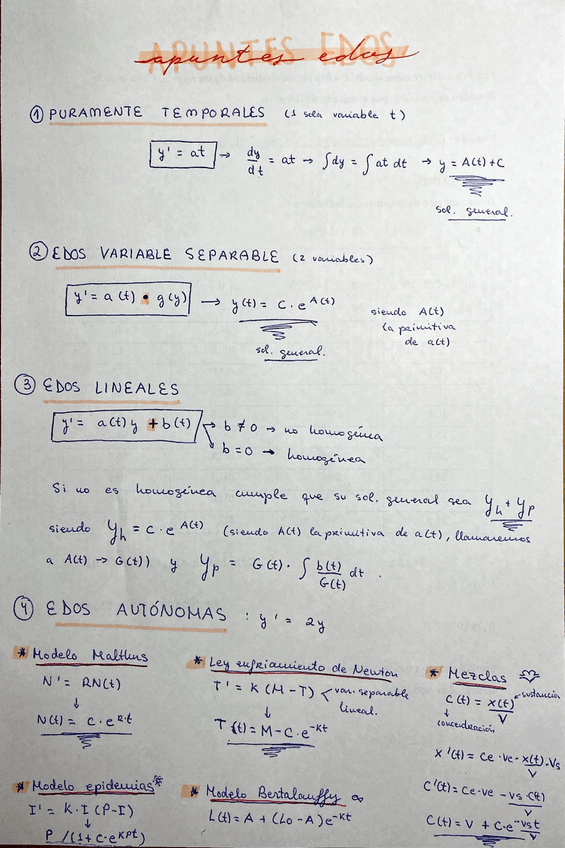 APUNTES EDOS
apuntes edos
① PURAMENTE TEMPORALES (1 sola variable t)
y' = at → dy/dt = at → ∫dy = ∫at dt → y = A(t)+C
sol. general.
② EDOS VARIABLE SEPARABLE (2 variables)
y' = a(t) • g(y) → y(t) = C·e^A(t)
siendo A(t)
la primitiva
de a(t)
sol. general.
③ EDOS LINEALES
y' = a(t)y + b(t) → b ≠ 0 → no homogénea
b = 0 → homogénea
Si no es homogénea cumple que su sol. general sea y_h + y_p
siendo y_h = C·e^A(t) (siendo A(t) la primitiva de a(t), llamaremos
a A(t) → G(t)) y y_p = G(t)·∫ b(t)/G(t) dt.
④ EDOS AUTÓNOMAS : y' = 2y
* Modelo Malthus
N' = RN(t)
↓
N(t) = C·e^R·t
* Ley enfriamiento de Newton
T' = K(M-T) < var. separable
lineal.
↓
T(t) = M-C·e^-Kt
* Mezclas
C(t) = x(t)/V ← sustancia
↓
concentración
x'(t) = Ce·Ve - x(t)/V·Vs
C'(t) = Ce·Ve - Vs C(t)/V
C(t) = V + C·e^-Vs t/V
* Modelo epidemias *
I' = K·I (P-I)
↓
P/(1+C·e^KPt)
* Modelo Bertalanffy ∞
L(t) = A + (L0-A)e^-Kt